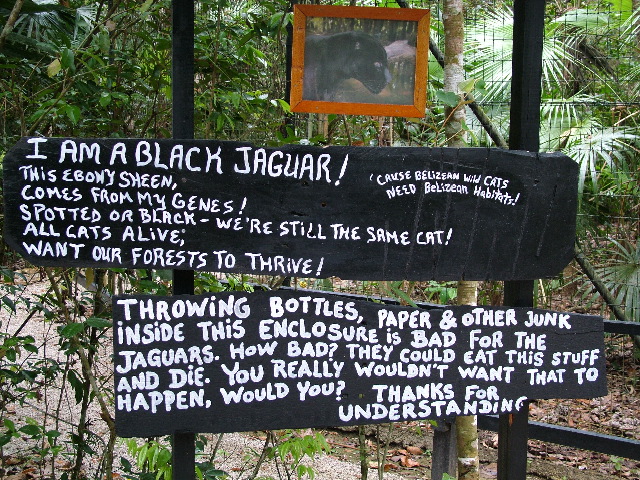 I AM A BLACK JAGUAR!
THIS EBONY SHEEN,
COMES FROM MY GENES!
SPOTTED OR BLACK - WE'RE STILL THE SAME CAT!
ALL CATS ALIVE;
WANT OUR FORESTS TO THRIVE!
'CAUSE BELIZEAN WILD CATS
NEED BELIZEAN HABITATS!
THROWING BOTTLES, PAPER & OTHER JUNK
INSIDE THIS ENCLOSURE IS BAD FOR THE
JAGUARS. HOW BAD? THEY COULD EAT THIS STUFF
AND DIE. YOU REALLY WOULDN'T WANT THAT TO
HAPPEN, WOULD YOU? THANKS FOR
UNDERSTANDING